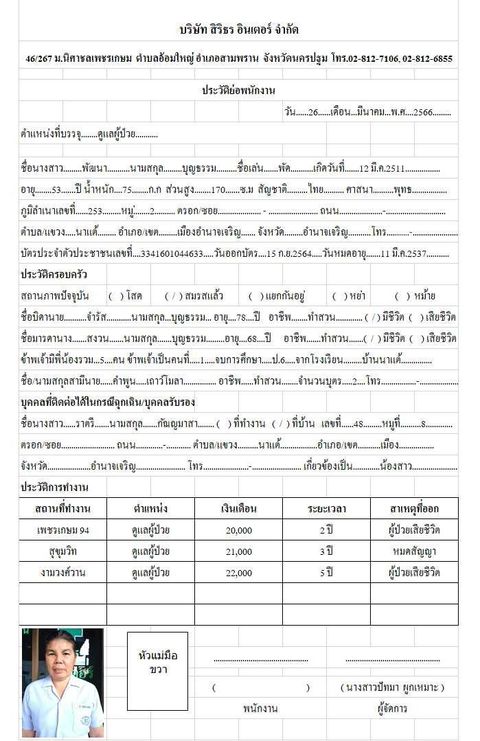 บริษัท สิริธร อินเตอร์ จำกัด
46/267 ม.นิศาชลเพชรเกษม ตำบลอ้อมใหญ่ อำเภอสามพราน จังหวัดนครปฐม โทร.02-812-7106, 02-812-6855
ประวัติย่อพนักงาน
วัน......26......เดือน...มีนาคม...พ.ศ....2566.........
ตำแหน่งที่บรรจุ........ดูแลผู้ป่วย...........
ชื่อนางสาว.......พัฒนา...........นามสกุล.........บุญธรรม.........ชื่อเล่น.......พัด...........เกิดวันที่.......12 มี.ค.2511...............
อายุ........53......ปี น้ำหนัก....75.......ก.ก ส่วนสูง........170.......ซ.ม สัญชาติ.........ไทย......... ศาสนา.........พุทธ...............
ภูมิลำเนาเลขที่......253.........หมู่.......2......... ตรอก/ซอย.................. - .................... ถนน..................-.......................
ตำบล/แขวง.......นาแต้......... อำเภอ/เขต........เมืองอำนาจเจริญ...... จังหวัด.........อำนาจเจริญ........โทร..........-...................
บัตรประจำตัวประชาชนเลขที่....3341601044633.....วันออกบัตร....15 ก.ย.2564.....วันหมดอายุ......11 มี.ค.2537...........
ประวัติครอบครัว
สถานภาพปัจจุบัน ( ) โสด ( / ) สมรสแล้ว ( ) แยกกันอยู่ ( ) หย่า ( ) หม้าย
ชื่อบิดานาย..........จำรัส..........นามสกุล...บุญธรรม... อายุ....78....ปี อาชีพ.......ทำสวน............ ( / ) มีชีวิต ( ) เสียชีวิต
ชื่อมารดานาง......สงวน........นามสกุล.......บุญธรรม........อายุ...68....ปี อาชีพ......ทำสวน........ ( / ) มีชีวิต ( ) เสียชีวิต
ข้าพเจ้ามีพี่น้องรวม...5....คน ข้าพเจ้าเป็นคนที่.....1.....จบการศึกษา.....ป.6.....จากโรงเรียน.........บ้านนาแต้..............
ชื่อ/นามสกุลสามีนาย......คำพูน......เถาว์โมลา................ อาชีพ......ทำสวน.......จำนวนบุตร....2....โทร.............-..............
บุคคลที่ติดต่อได้ในกรณีฉุกเฉิน/บุคคลรับรอง
ชื่อนางสาว.....ราตรี.......นามสกุล......กัณญมาสา....... ( ) ที่ทำงาน ( / ) ที่บ้าน เลขที่......48........หมู่ที่.........8...........
ตรอก/ซอย................... ถนน...........-........... ตำบล/แขวง.........นาแต้..............อำเภอ/เขต........เมือง...............
จังหวัด...............อำนาจเจริญ................... โทร..................-................... เกี่ยวข้องเป็น..........น้องสาว................
ประวัติการทำงาน
สถานที่ทำงาน ตำแหน่ง เงินเดือน ระยะเวลา สาเหตุที่ออก
เพชรเกษม 94 ดูแลผู้ป่วย 20,000 2 ปี ผู้ป่วยเสียชีวิต
สุขุมวิท ดูแลผู้ป่วย 21,000 3 ปี หมดสัญญา
งามวงศ์วาน ดูแลผู้ป่วย 22,000 5 ปี ผู้ป่วยเสียชีวิต
หัวแม่มือ
ขวา
( ) ( นางสาวปัทมา ผูกเหมาะ )
พนักงาน ผู้จัดการ